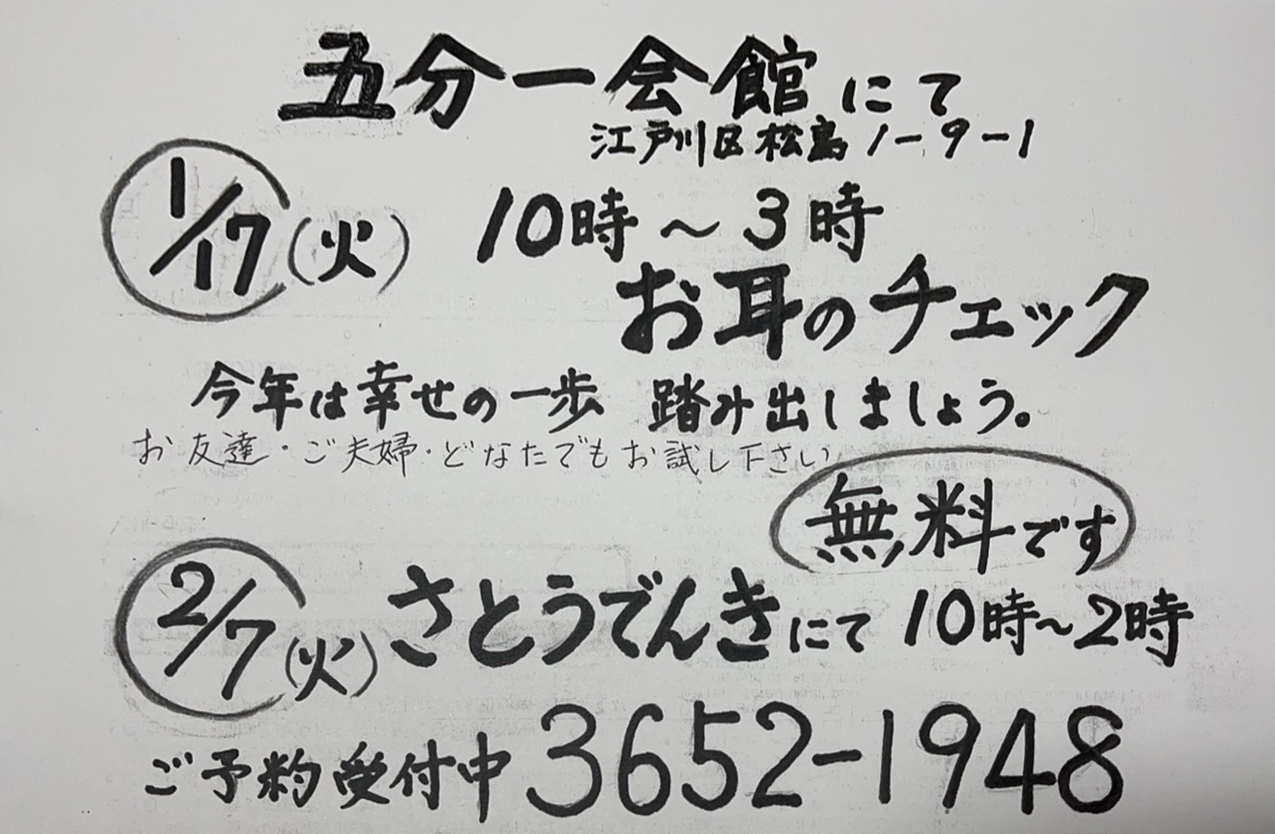 五分一会館にて
江戸川区松島1-9-1
1/17(火) 10時～3時
お耳のチェック
今年は幸せの一歩 踏み出しましょう。
お友達・ご夫婦・どなたでもお試し下さい
無料です
2/7(火) さとうでんきにて 10時～2時
ご予約受付中 3652-1948